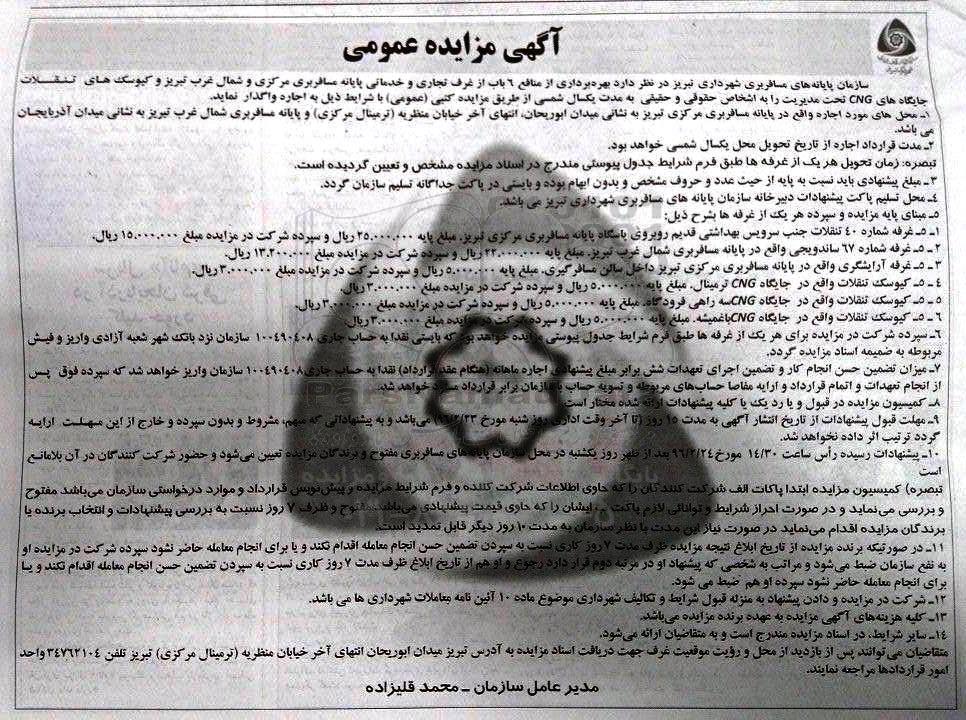 آگهی مزایده عمومی
سازمان پایانه‌های مسافربری شهرداری تبریز در نظر دارد بهره‌برداری از منافع ۶ باب از غرف تجاری و خدماتی پایانه مسافربری مرکزی و شمال غرب تبریز و کیوسک های تنقلات
جایگاه های CNG تحت مدیریت را به اشخاص حقوقی و حقیقی به مدت یکسال شمسی از طریق مزایده کتبی (عمومی) با شرایط ذیل به اجاره واگذار نماید.
۱ـ محل های مورد اجاره واقع در پایانه مسافربری مرکزی تبریز به نشانی میدان ابوریحان، انتهای آخر خیابان منظریه (ترمینال مرکزی) و پایانه مسافربری شمال غرب تبریز به نشانی میدان آذربایجان
می باشد.
۲ـ مدت قرارداد اجاره از تاریخ تحویل محل یکسال شمسی خواهد بود.
تبصره: زمان تحویل هر یک از غرفه ها طبق فرم شرایط جدول پیوستی مندرج در اسناد مزایده مشخص و تعیین گردیده است.
۳ـ مبلغ پیشنهادی باید نسبت به پایه از حیث عدد و حروف مشخص و بدون ابهام بوده و بایستی در پاکت جداگانه تسلیم سازمان گردد.
۴ـ محل تسلیم پاکت پیشنهادات دبیرخانه سازمان پایانه های مسافربری شهرداری تبریز می باشد.
۵ـ مبنای پایه مزایده و سپرده هر یک از غرفه ها بشرح ذیل:
۱ـ۵ـ غرفه شماره ۴۰ تنقلات جنب سرویس بهداشتی قدیم روبروی باسگاه پایانه مسافربری مرکزی تبریز. مبلغ پایه ۲۵.۰۰۰.۰۰۰ ریال و سپرده شرکت در مزایده مبلغ ۱۵.۰۰۰.۰۰۰ ریال.
۲ـ۵ـ غرفه شماره ۶۷ ساندویچی واقع در پایانه مسافربری شمال غرب تبریز. مبلغ پایه ۲۲.۰۰۰.۰۰۰ ریال و سپرده شرکت در مزایده مبلغ ۱۳.۲۰۰.۰۰۰ ریال.
۳ـ۵ـ غرفه آرایشگری واقع در پایانه مسافربری مرکزی تبریز داخل سالن مسافرگیری. مبلغ پایه ۵.۰۰۰.۰۰۰ ریال و سپرده شرکت در مزایده مبلغ ۳.۰۰۰.۰۰۰ ریال.
۴ـ۵ـ کیوسک تنقلات واقع در جایگاه CNG ترمینال. مبلغ پایه ۵.۰۰۰.۰۰۰ ریال و سپرده شرکت در مزایده مبلغ ۳.۰۰۰.۰۰۰ ریال.
۵ـ۵ـ کیوسک تنقلات واقع در جایگاه CNG سه راهی فرودگاه. مبلغ پایه ۵.۰۰۰.۰۰۰ ریال و سپرده شرکت در مزایده مبلغ ۳.۰۰۰.۰۰۰ ریال.
۶ـ۵ـ کیوسک تنقلات واقع در جایگاه CNG باغمیشه. مبلغ پایه ۵.۰۰۰.۰۰۰ ریال و سپرده شرکت در مزایده مبلغ ۳.۰۰۰.۰۰۰ ریال.
۶ـ سپرده شرکت در مزایده برای هر یک از غرفه ها طبق فرم شرایط جدول پیوستی مزایده خواهد بود که بایستی نقدا به حساب جاری ۱۰۰۴۹۰۴۰۸ سازمان نزد بانک شهر شعبه آزادی واریز و فیش
مربوطه به ضمیمه اسناد مزایده گردد.
۷ـ میزان تضمین حسن انجام کار و تضمین اجرای تعهدات شش برابر مبلغ پیشنهادی اجاره ماهانه (هنگام عقد قرارداد) نقدا به حساب جاری ۱۰۰۴۹۰۴۰۸ سازمان واریز خواهد شد که سپرده فوق پس
از انجام تعهدات و اتمام قرارداد و ارایه مفاصا حساب‌های مربوطه و تسویه حساب با سازمان برابر قرارداد مسترد خواهد شد.
۸ـ کمیسیون مزایده در قبول و یا رد یک یا کلیه پیشنهادات ارائه شده مختار است.
۹ـ مهلت قبول پیشنهادات از تاریخ انتشار آگهی به مدت ۱۵ روز (تا آخر وقت اداری روز شنبه مورخ ۹۶/۲/۲۳) می‌باشد و به پیشنهاداتی که مبهم، مشروط و بدون سپرده و خارج از این مهلت ارایه
گردد ترتیب اثر داده نخواهد شد.
۱۰ـ پیشنهادات رسیده رأس ساعت ۱۴/۳۰ مورخ ۹۶/۲/۲۴ بعد از ظهر روز یکشنبه در محل سازمان پایانه های مسافربری مفتوح و برندگان مزایده تعیین می‌شود و حضور شرکت کنندگان در آن بلامانع
است
تبصره) کمیسیون مزایده ابتدا پاکات الف شرکت کنندگان را که حاوی اطلاعات شرکت کننده و فرم شرایط مزایده و پیش‌نویس قرارداد و موارد درخواستی سازمان می‌باشد مفتوح
و بررسی می‌نماید و در صورت احراز شرایط و توانائی لازم پاکت ب ایشان را که حاوی قیمت پیشنهادی می‌باشد، مفتوح و ظرف ۷ روز نسبت به بررسی پیشنهادات و انتخاب برنده یا
برندگان مزایده اقدام می‌نماید در صورت نیاز این مدت با نظر سازمان به مدت ۱۰ روز دیگر قابل تمدید است.
۱۱ـ در صورتیکه برنده مزایده از تاریخ ابلاغ نتیجه مزایده ظرف مدت ۷ روز کاری نسبت به سپردن تضمین حسن انجام معامله اقدام نکند و یا برای انجام معامله حاضر نشود سپرده شرکت در مزایده او
به نفع سازمان ضبط می‌شود و مراتب به شخصی که پیشنهاد او در مرتبه دوم قرار دارد رجوع و او هم از تاریخ ابلاغ ظرف مدت ۷ روز کاری نسبت به سپردن تضمین حسن انجام معامله اقدام نکند و یا
برای انجام معامله حاضر نشود سپرده او هم ضبط می شود.
۱۲ـ شرکت در مزایده و دادن پیشنهاد به منزله قبول شرایط و تکالیف شهرداری موضوع ماده ۱۰ آئین نامه معاملات شهرداری ها می باشد.
۱۳ـ کلیه هزینه‌های آگهی مزایده به عهده برنده مزایده می‌باشد.
۱۴ـ سایر شرایط، در اسناد مزایده مندرج است و به متقاضیان ارائه می‌شود.
متقاضیان می‌توانند پس از بازدید از محل و رؤیت موقعیت غرف جهت دریافت اسناد مزایده به آدرس تبریز میدان ابوریحان انتهای آخر خیابان منظریه (ترمینال مرکزی) تبریز تلفن ۳۴۷۶۲۱۰۴ واحد
امور قراردادها مراجعه نمایند.
مدیر عامل سازمان ـ محمد قلیزاده